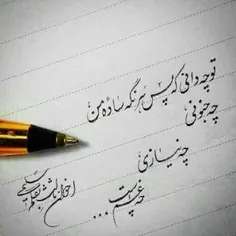 تو چه دانی که پس هر نگه ساده من
چه جنونی
چه نیازی
چه غمی ست ...
اخوان ثالث